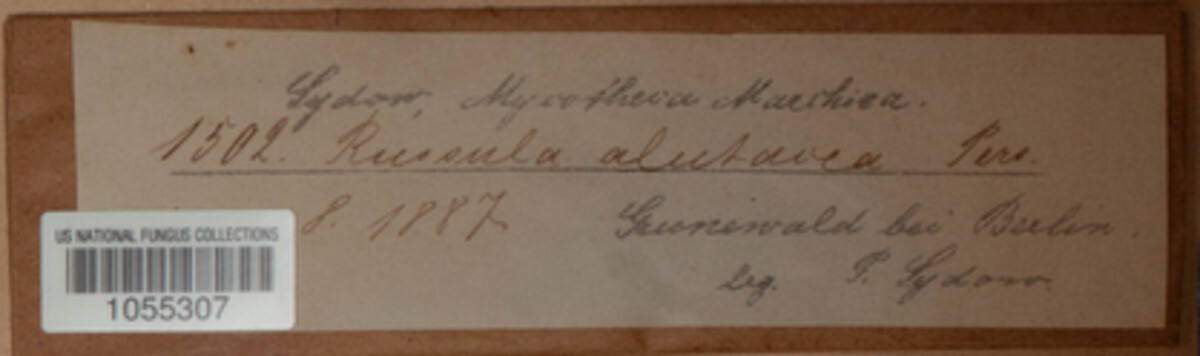 Sydow, Mycotheca Marchica.
1502. Russula alutacea Pers.
8. 1887
Grunewald bei Berlin.
leg. P. Sydow.
US NATIONAL FUNGUS COLLECTIONS
1055307